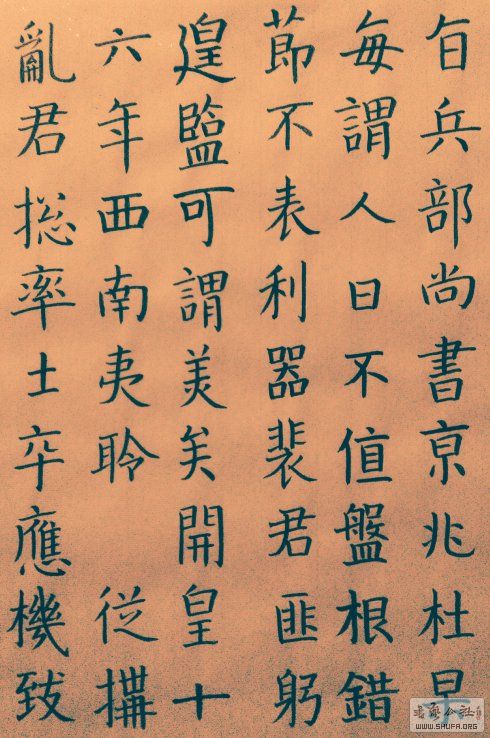 旨兵部尚書京兆杜
每謂人曰不值盤根錯
節不表利器裴君匪躬
遑盬可謂美矣 開皇十
六年西南夷聆 従搆
亂君揔率士卒應機致
书艺公社
WWW.SHUFA.ORG